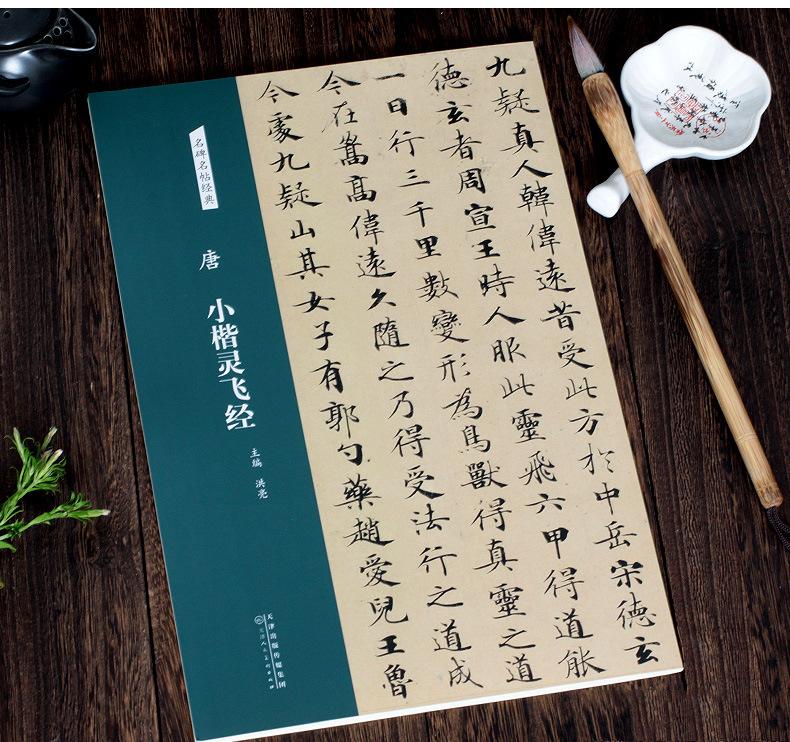 名碑名帖经典
唐
小楷灵飞经
主编 洪亮
天津出版传媒集团
天津人民美术出版社
九疑真人韓偉遠昔受此方於中岳宋德玄
德玄者周宣王時人服此靈飛六甲得道能
一日行三千里數變形為鳥獸得真靈之道
今在嵩高偉遠久隨之乃得受法行之道成
今處九疑山其女子有郭勺藥趙愛兒王魯